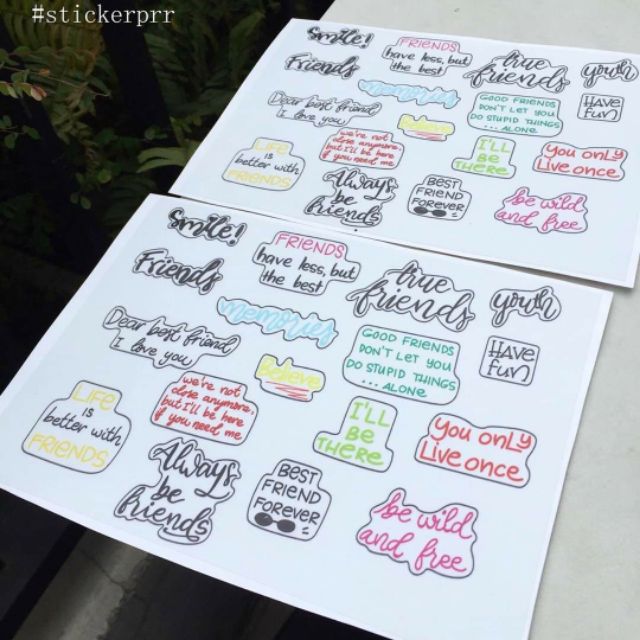 #stickerprr
Smile!
FRIENDS
have less, but
the best
true
friends
youth
Friends
memories
GOOD FRIENDS
DON'T LET YOU
DO STUPID THINGS
... ALONE
HAVE
FUN
Dear best friend
I love you
Believe
we're not
close anymore,
but I'll be here
if you need me
I'LL
BE
THERE
You ONLY
Live once
LIFE
is
better with
FRIENDS
Always
be
friends
BEST
FRIEND
FOREVER
be wild
and free
Smile!
FRIENDS
have less, but
the best
true
friends
youth
Friends
memories
GOOD FRIENDS
DON'T LET YOU
DO STUPID THINGS
... ALONE
HAVE
FUN
Dear best friend
I love you
Believe
we're not
close anymore,
but I'll be here
if you need me
I'LL
BE
THERE
You ONLY
Live once
LIFE
is
better with
FRIENDS
Always
be
friends
BEST
FRIEND
FOREVER
be wild
and free